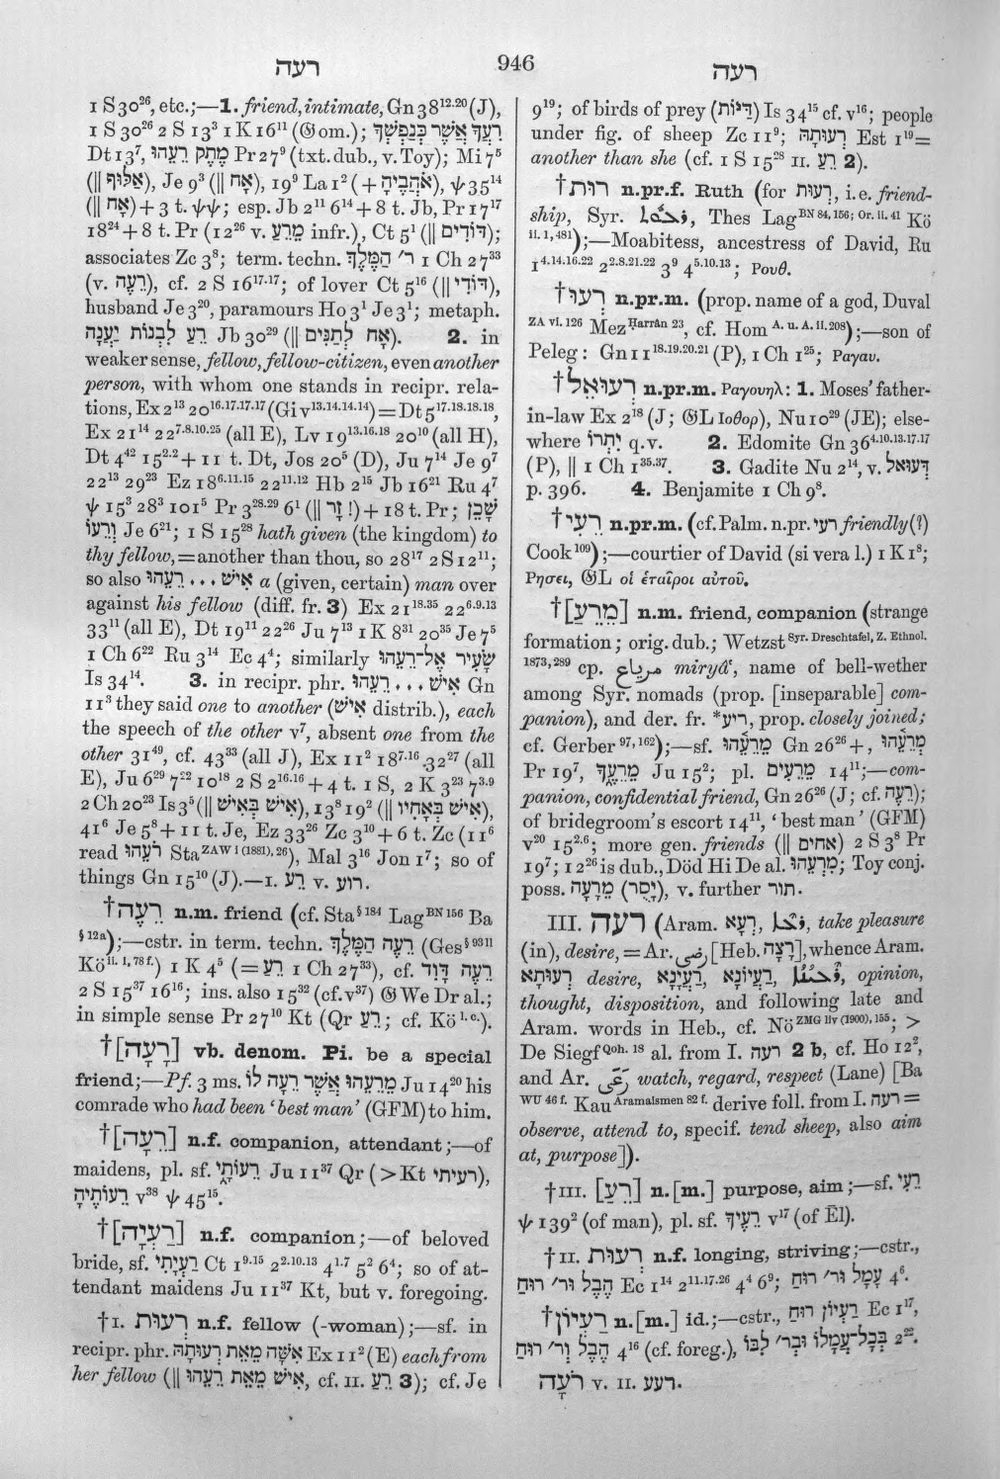 רעה
946
רעה
1 S 30²⁶, etc.;—1. friend, intimate, Gn 38¹²·²⁰ (J),
1 S 30²⁶ 2 S 13³ 1 K 16¹¹ (𝔊 om.); רֵעֲךָ אֲשֶׁר כְּנַפְשְׁךָ
Dt 13⁷, מֶתֶק רֵעֵהוּ Pr 27⁹ (txt. dub., v. Toy); Mi 7⁵
(‖ אַלּוּף), Je 9³ (‖ אָח), 19⁹ La 1² (+ אֹהֲבֶיהָ), ψ 35¹⁴
(‖ אָח) + 3 t. ψψ; esp. Jb 2¹¹ 6¹⁴ + 8 t. Jb, Pr 17¹⁷
18²⁴ + 8 t. Pr (12²⁶ v. מֵרֵעַ infr.), Ct 5¹ (‖ דּוֹדִים);
associates Zc 3⁸; term. techn. ר׳ הַמֶּלֶךְ 1 Ch 27³³
(v. רֵעֶה), cf. 2 S 16¹⁷·¹⁷; of lover Ct 5¹⁶ (‖ דּוֹדִי),
husband Je 3²⁰, paramours Ho 3¹ Je 3¹; metaph.
רֵעַ לִבְנוֹת יַעֲנָה Jb 30²⁹ (‖ אָח לְתַנִּים). 2. in
weaker sense, fellow, fellow-citizen, even another
person, with whom one stands in recipr. rela-
tions, Ex 2¹³ 20¹⁶·¹⁷·¹⁷·¹⁷ (Gi v¹³·¹⁴·¹⁴·¹⁴) = Dt 5¹⁷·¹⁸·¹⁸·¹⁸,
Ex 21¹⁴ 22⁷·⁸·¹⁰·²⁵ (all E), Lv 19¹³·¹⁶·¹⁸ 20¹⁰ (all H),
Dt 4⁴² 15²·² + 11 t. Dt, Jos 20⁵ (D), Ju 7¹⁴ Je 9⁷
22¹³ 29²³ Ez 18⁶·¹¹·¹⁵ 22¹¹·¹² Hb 2¹⁵ Jb 16²¹ Ru 4⁷
ψ 15³ 28³ 101⁵ Pr 3²⁸·²⁹ 6¹ (‖ זָר !) + 18 t. Pr; שָׁכֵן
וְרֵעוֹ Je 6²¹; 1 S 15²⁸ hath given (the kingdom) to
thy fellow, = another than thou, so 28¹⁷ 2 S 12¹¹;
so also אִישׁ ... רֵעֵהוּ a (given, certain) man over
against his fellow (diff. fr. 3) Ex 21¹⁸·³⁵ 22⁶·⁹·¹³
33¹¹ (all E), Dt 19¹¹ 22²⁶ Ju 7¹³ 1 K 8³¹ 20³⁵ Je 7⁵
1 Ch 6²² Ru 3¹⁴ Ec 4⁴; similarly שָׂעִיר אֶל־רֵעֵהוּ
Is 34¹⁴. 3. in recipr. phr. אִישׁ ... רֵעֵהוּ Gn
11³ they said one to another (אִישׁ distrib.), each
the speech of the other v⁷, absent one from the
other 31⁴⁹, cf. 43³³ (all J), Ex 11² 18⁷·¹⁶ 32²⁷ (all
E), Ju 6²⁹ 7²² 10¹⁸ 2 S 2¹⁶·¹⁶ + 4 t. 1 S, 2 K 3²³ 7³·⁹
2 Ch 20²³ Is 3⁵ (‖ אִישׁ בְּאִישׁ), 13⁸ 19² (‖ אִישׁ בְּאָחִיו),
41⁶ Je 5⁸ + 11 t. Je, Ez 33²⁶ Zc 3¹⁰ + 6 t. Zc (11⁶
read רֹעֵהוּ Sta ZAW i (1881), 26), Mal 3¹⁶ Jon 1⁷; so of
things Gn 15¹⁰ (J).—I. רֵעַ v. רוע.
†רֵעֶה n.m. friend (cf. Sta § 184 Lag BN 156 Ba
§ 12a);—cstr. in term. techn. רֵעֶה הַמֶּלֶךְ (Ges § 93 ll
Kö ii. 1, 78 f.) 1 K 4⁵ (= רֵעַ 1 Ch 27³³), cf. רֵעֶה דָוִד
2 S 15³⁷ 16¹⁶; ins. also 15³² (cf. v³⁷) 𝔊 We Dr al.;
in simple sense Pr 27¹⁰ Kt (Qr רֵעַ; cf. Kö l. c.).
†[רָעָה] vb. denom. Pi. be a special
friend;—Pf. 3 ms. מֵרֵעֵהוּ אֲשֶׁר רֵעָה לוֹ Ju 14²⁰ his
comrade who had been ‘best man’ (GFM) to him.
†[רֵעָה] n.f. companion, attendant;—of
maidens, pl. sf. רֵעוֹתָי Ju 11³⁷ Qr (> Kt רעיתי),
רֵעוֹתֶיהָ v³⁸ ψ 45¹⁵.
†[רַעְיָה] n.f. companion;—of beloved
bride, sf. רַעְיָתִי Ct 1⁹·¹⁵ 2²·¹⁰·¹³ 4¹·⁷ 5² 6⁴; so of at-
tendant maidens Ju 11³⁷ Kt, but v. foregoing.
†I. רְעוּת n.f. fellow (-woman);—sf. in
recipr. phr. אִשָּׁה מֵאֵת רְעוּתָהּ Ex 11² (E) each from
her fellow (‖ אִישׁ מֵאֵת רֵעֵהוּ, cf. II. רֵעַ 3); cf. Je
9¹⁹; of birds of prey (דַּיּוֹת) Is 34¹⁵ cf. v¹⁶; people
under fig. of sheep Zc 11⁹; רְעוּתָהּ Est 1¹⁹ =
another than she (cf. 1 S 15²⁸ II. רֵעַ 2).
†רוּת n.pr.f. Ruth (for רְעוּת, i.e. friend-
ship, Syr. , Thes Lag BN 84, 156; Or. ii. 41 Kö
ii. 1, 481);—Moabitess, ancestress of David, Ru
1⁴·¹⁴·¹⁶·²² 2²·⁸·²¹·²² 3⁹ 4⁵·¹⁰·¹³; Ρουθ.
†רְעוּ n.pr.m. (prop. name of a god, Duval
ZA vi. 126 Mez Ḥarrân 23, cf. Hom A. u. A. ii. 208);—son of
Peleg: Gn 11¹⁸·¹⁹·²⁰·²¹ (P), 1 Ch 1²⁵; Ραγαυ.
†רְעוּאֵל n.pr.m. Ραγουηλ: 1. Moses’ father-
in-law Ex 2¹⁸ (J; 𝔊L Ιοθορ), Nu 10²⁹ (JE); else-
where יִתְרוֹ q.v. 2. Edomite Gn 36⁴·¹⁰·¹³·¹⁷·¹⁷
(P), ‖ 1 Ch 1³⁵·³⁷. 3. Gadite Nu 2¹⁴, v. דְּעוּאֵל
p. 396. 4. Benjamite 1 Ch 9⁸.
†רֵעִי n.pr.m. (cf. Palm. n.pr. רעי friendly (?)
Cook 109);—courtier of David (si vera l.) 1 K 1⁸;
Ρησει, 𝔊L οἱ ἑταῖροι αὐτοῦ.
†[מֵרֵעַ] n.m. friend, companion (strange
formation; orig. dub.; Wetzst Syr. Dreschtafel, Z. Ethnol.
1873, 289 cp. مرياع miryâʿ, name of bell-wether
among Syr. nomads (prop. [inseparable] com-
panion), and der. fr. *ריע, prop. closely joined;
cf. Gerber 97, 162);—sf. מֵרֵעֵהוּ Gn 26²⁶ +, מְרֵעֵהוּ
Pr 19⁷, מֵרֵעֶךָ Ju 15²; pl. מֵרֵעִים 14¹¹;—com-
panion, confidential friend, Gn 26²⁶ (J; cf. רֵעֶה);
of bridegroom’s escort 14¹¹, ‘best man’ (GFM)
v²⁰ 15²·⁶; more gen. friends (‖ אחים) 2 S 3⁸ Pr
19⁷; 12²⁶ is dub., Död Hi De al. מִרְעֵהוּ; Toy conj.
poss. מֵרָעָה (יָסֻר), v. further תור.
III. רעה (Aram. רְעָא, , take pleasure
(in), desire, = Ar. رضى [Heb. רָצָה], whence Aram.
רְעוּתָא desire, רַעֲיָנָא, רַעְיוֹנָא, , opinion,
thought, disposition, and following late and
Aram. words in Heb., cf. Nö ZMG liv (1900), 155; >
De Siegf Qoh. 18 al. from I. רעה 2 b, cf. Ho 12²,
and Ar. رَعَى watch, regard, respect (Lane) [Ba
WU 46 f. Kau Aramaismen 82 f. derive foll. from I. רעה =
observe, attend to, specif. tend sheep, also aim
at, purpose]).
†III. [רֵעַ] n.[m.] purpose, aim;—sf. רֵעִי
ψ 139² (of man), pl. sf. רֵעֶיךָ v¹⁷ (of Ēl).
†II. רְעוּת n.f. longing, striving;—cstr.,
הֶבֶל וּר׳ רוּחַ Ec 1¹⁴ 2¹¹·¹⁷·²⁶ 4⁴ 6⁹; עָמָל וּר׳ רוּחַ 4⁶.
†רַעְיוֹן n.[m.] id.;—cstr., רַעְיוֹן רוּחַ Ec 1¹⁷,
הֶבֶל וְר׳ רוּחַ 4¹⁶ (cf. foreg.), בְּכָל־עֲמָלוֹ וּבְר׳ לִבּוֹ 2²².
רֹעָה v. II. רעע.